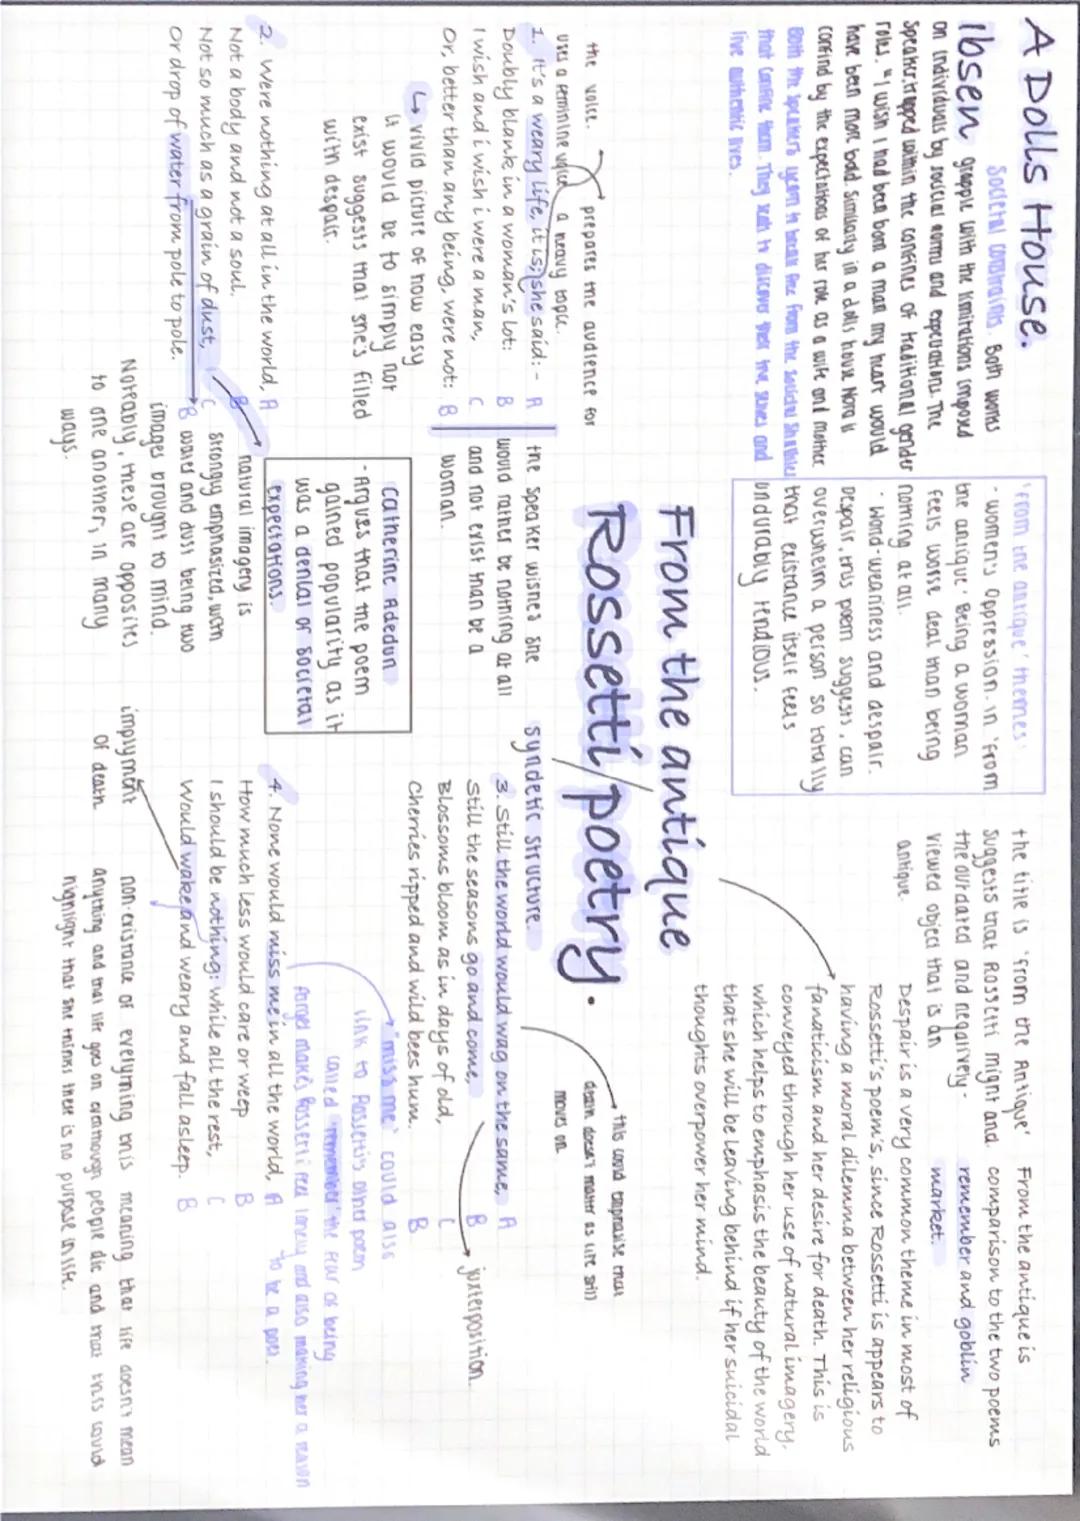 A Dolls House.
Ibsen
Societal constraints. Both works
grapple with the limitations imposed
on individuals by societal norms and expectations. The
speaker, trapped within the confines of traditional gender
roles. "I wish I had been born a man my heart would
have been more bold. Similarly in a dolls house Nora is
confind by the expectations of her role as a wife and mother
Both the speakers yearn to break free from the societal shackles
that confine them. They seek to discover their true selves and
live authentic lives.
'from the antique' themes:
- women's oppression. in 'from
the anique'. Being a woman
feels worse deal than being
nothing at all.
· Word-weariness and despair.
Despair, this poem suggests, can
overwhelm a person so totally
that existance itself feels
undurably tendious.
the title is 'from the Antique'
suggests that Rossetti might and
the outdated and negatively-
viewed object that is an
antique.
From the antique is
comparison to the two poems
remember and goblin
market.
Despair is a very common theme in most of
Rossetti's poem's, since Rossetti is appears to
having a moral dilemma between her religious
fanaticism and her desire for death. This is
conveyed through her use of natural imagery,
which helps to emphasis the beauty of the world
that she will be leaving behind if her suicidal
thoughts overpower her mind.
From the antique
Rossetti/poetry.
the voice.
uses a feminine voice
prepares the audience for
a heavy topic.
1. It's a weary life, it is; she said:- A
Doubly blank in a woman's lot: B
I wish and i wish i were a man, C
Or, better than any being, were not: B
↳ vivid picture of how easy
is would be to simply not
exist suggests that she's filled
with despair.
the speaker wishes she
would rather be nothing at all
and not exist than be a
woman.
Catherine Adedun
- Argues that the poem
gained popularity as it
was a denial of societal
expectations.
2. Were nothing at all in the world, A
Not a body and not a soul. B
Not so much as a grain of dust, C
Or drop of water from pole to pole. B
natural imagery is
strongly emphasized, with
water and dust being two
images brought to mind.
Noteably, these are opposites
to one another, in many
ways.
syndetic structure.
3. Still the world would wag on the same, A
Still the seasons go and come, B
Blossoms bloom as in days of old, C
Cherries ripped and wild bees hum. B
this could emphasise that
death doesn't matter as life still
moves on
juxterposition.
"miss me" could also
link to Rossettis other poem
called 'remember' the fear of being
forget makes Rossetti feel lonely and also making her a reason
to be a poet.
4. None would miss me in all the world, A
How much less would care or weep B
I should be nothing: while all the rest, C
Would wake and weary and fall asleep. B
implyment
of death
non-existance of everything this meaning that life doesn't mean
anything and that life goes on eventhough people die and that this could
highlight that she thinks there is no purpose in life.